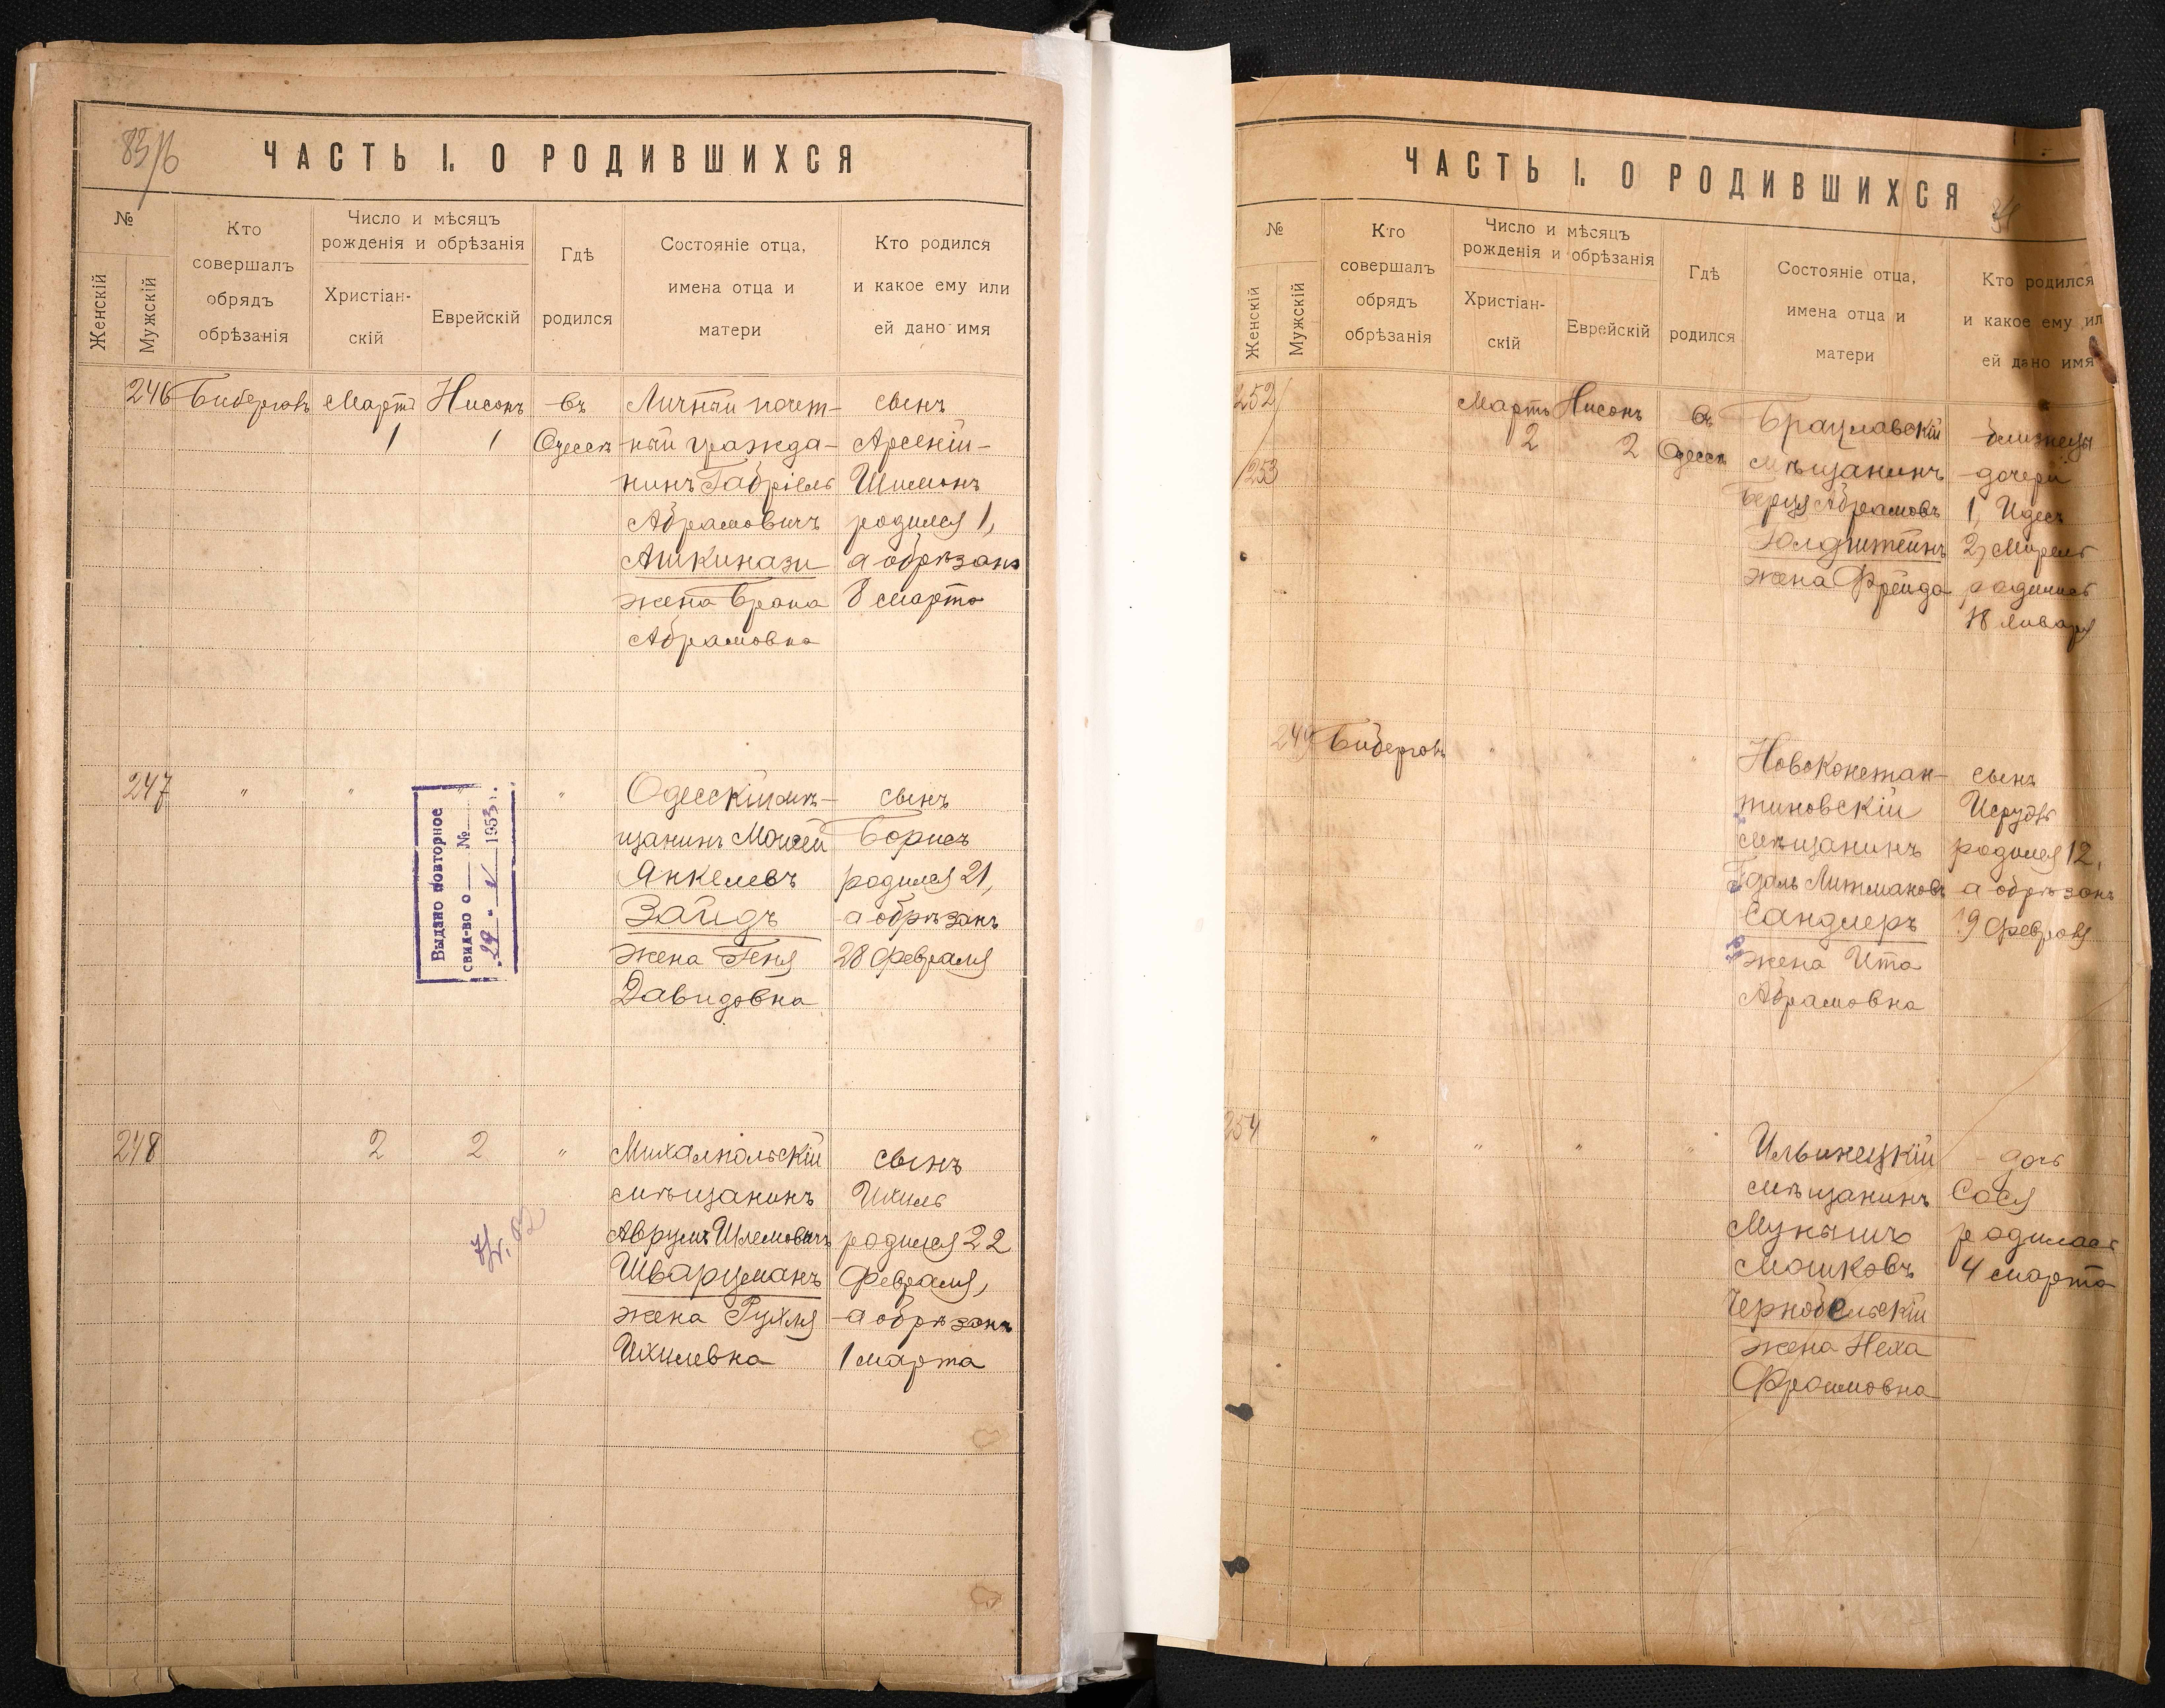 83/б
ЧАСТЬ I. О РОДИВШИХСЯ
№
Женскій
Мужскій
Кто
совершалъ
обрядъ
обрѣзанія
Число и мѣсяцъ
рожденія и обрѣзанія
Христіан-
скій
Еврейскій
Гдѣ
родился
Состояніе отца,
имена отца и
матери
Кто родился
и какое ему или
ей дано имя
246 Бибергов Мартъ Нисонъ въ Личный почет- сынъ
1 1 Одессѣ ный гражда- Арсеній-
нинъ Габріель Шимонъ
Абрамовичъ родился 1,
Ашкинази а обрѣзанъ
жена Брана 8 марта
Абрамовна
247 " " " " Одесскій мѣ- сынъ
щанинъ Мойсей Борисъ
Янкелевъ родился 21,
Зайдъ а обрѣзанъ
жена Геня 28 февраля
Давидовна
Выдано повторное
свид-во о № 
"29" V 1953 г.
248 2 2 " Михалпольскій сынъ
мѣщанинъ Ихиль
Аврумъ Шлемовичъ родился 22
Шварцманъ февраля,
жена Рухля а обрѣзанъ
Ихилевна 1 марта
ЧАСТЬ I. О РОДИВШИХСЯ
№
Женскій
Мужскій
Кто
совершалъ
обрядъ
обрѣзанія
Число и мѣсяцъ
рожденія и обрѣзанія
Христіан-
скій
Еврейскій
Гдѣ
родился
Состояніе отца,
имена отца и
матери
Кто родился
и какое ему ил
ей дано имя
252 Мартъ Нисонъ въ Брацлавскій близнецы
253 2 2 Одессѣ мѣщанинъ дочери
Берцъ Абрамовъ 1, Идесъ
Голдштейнъ 2, Мирель
жена Фрейда родились
18 января
249 Бибергов " " " Новоконстан- сынъ
тиновскій Исруль
мѣщанинъ родился 12,
Гдаль Литмановъ а обрѣзанъ
Сандлеръ 19 февраля
жена Ита
Абрамовна
254 " " " " Ильинецкій дочь
мѣщанинъ Сося
Мунышъ родилась
Мошковъ 4 марта
Чернобельскій
жена Неха
Фроимовна